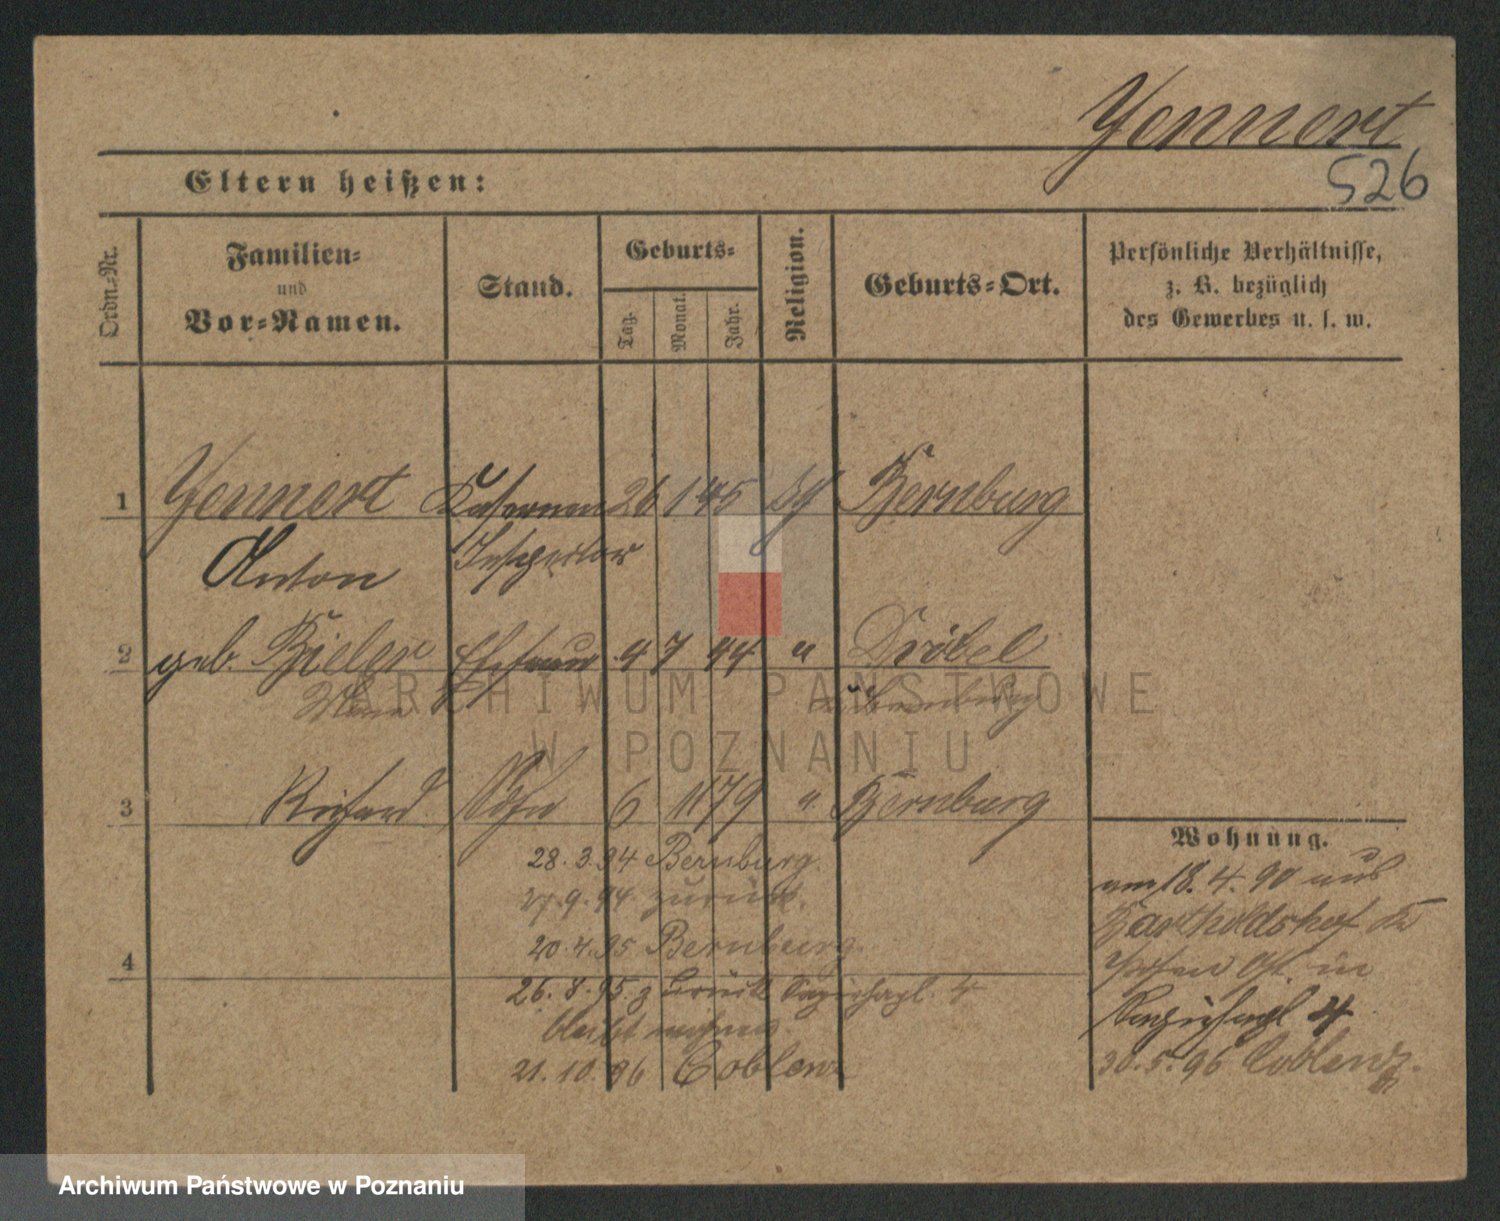 Yennert
526
Eltern heißen:
Ordn.-Nr.
Familien-
und
Vor-Namen.
Stand.
Geburts-
Tag.
Monat.
Jahr.
Religion.
Geburts-Ort.
Persönliche Verhältnisse,
z. B. bezüglich
des Gewerbes u. s. w.
1 Yennert Kasernen 26 1 45 Bernburg
Anton Inspektor
2 geb. Bieler Ehefrau 4 7 44 " Dröbel
Bernburg
3 Richard Sohn 6 11 79 " Bernburg
Wohnung.
28.3.94 Bernburg.
27.9.94 zurück.
20.4.95 Bernburg.
4
26.8.95 zurück 4
bleibt wohnen
21.10.96 Coblenz
am 18.4.90 aus
Bartholdshof
Posen in
4
30.5.96 Coblenz.
ARCHIWUM PAŃSTWOWE
W POZNANIU
Archiwum Państwowe w Poznaniu